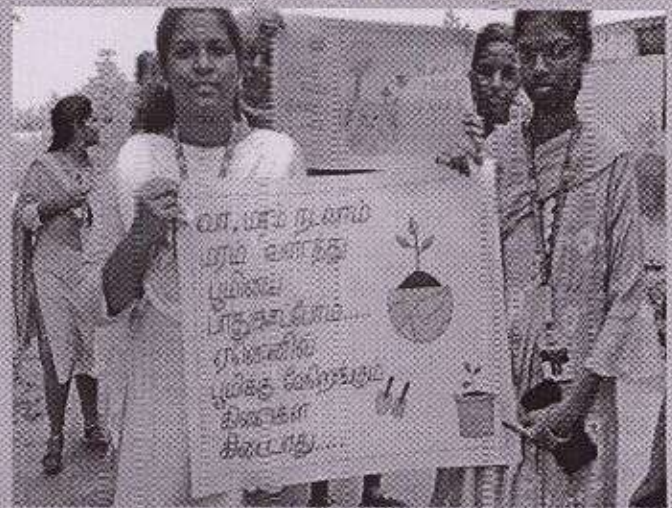 வா, மரம் நடலாம்
மரம் வளர்த்து
பூமியை
பாதுகாப்போம்....
ஏனெனில்
பூமிக்கு வேறெங்கும்
கிளைகள்
கிடையாது....